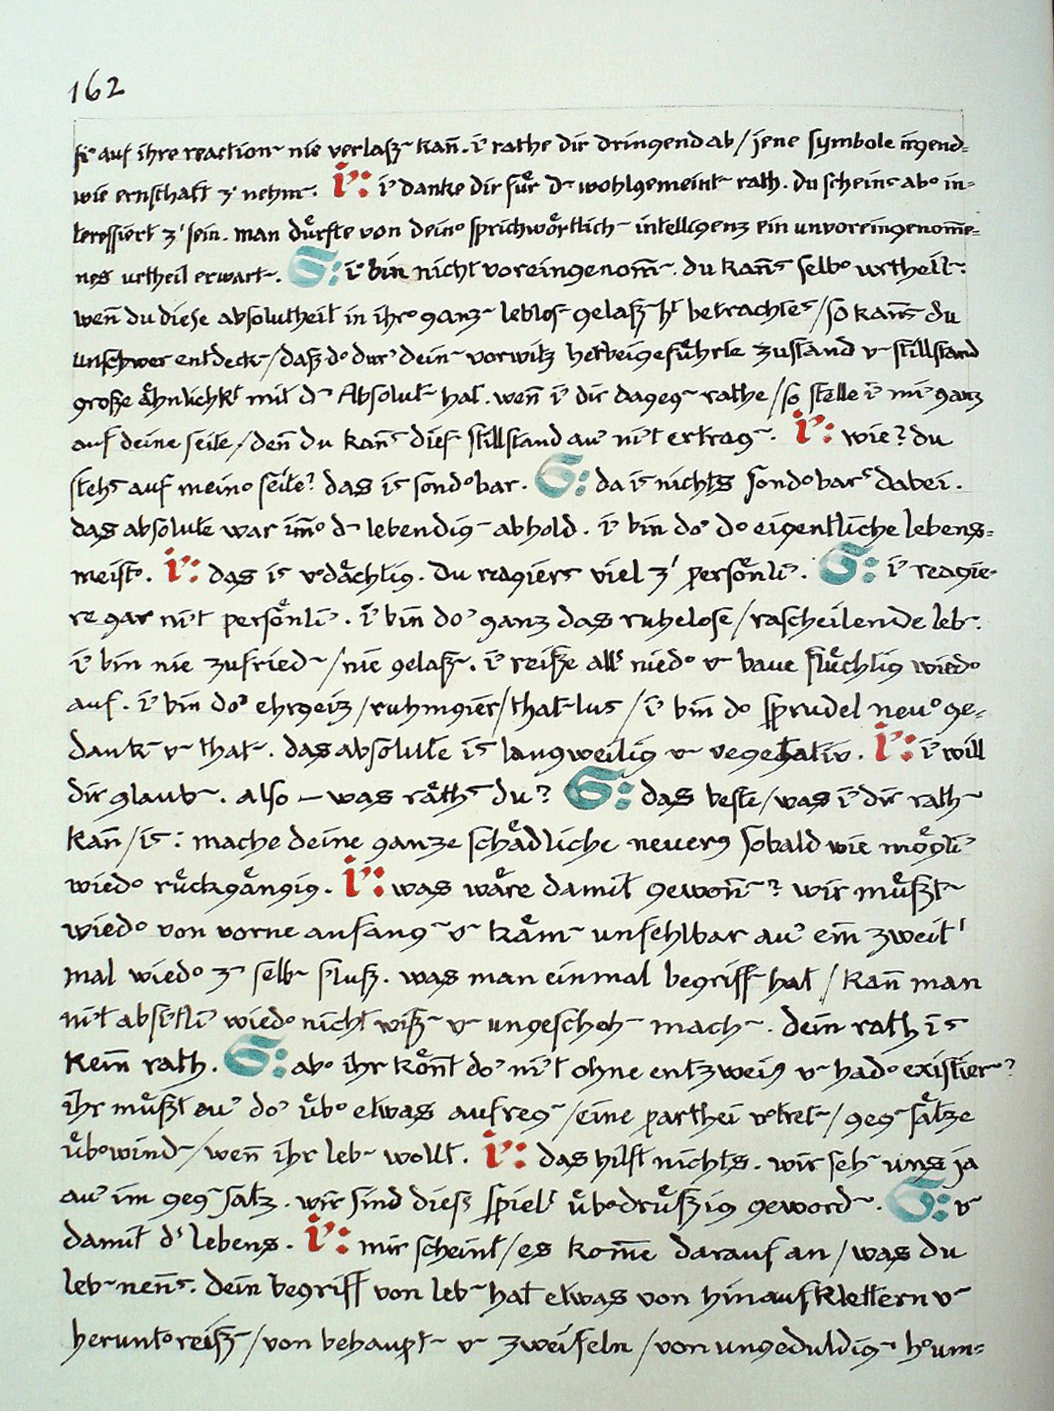 162
si᷎ auf ihre reaction̄ nie verlaß̄ kañ. i᷎ rathe dir dringend ab/jene symbole irgend=
wie ernsthaft z' nehm̄. i᷎: i᷎ danke dir fuͤr d̄ wohlgemeint̄ rath. du scheins abo in=
teressiert z' sein. man duͤrfte von deino sprichwoͤrtlich̄ intelligenz ein unvoreingenom̄e=
nes urtheil erwart̄. S: i᷎ bin nicht voreingenom̄. du kañs selbo urtheil̄:
weñ du diese absolutheit in ihro ganz̄ leblos̄ gelaß̄ht betrachtes/so kañs du
unschwer entdeck̄/daß do dur᷎ dein̄ vorwitz herbeigefuͤhrte zustand v̄ stillstand
große aͤhnlichkt mit d̄ Absolut̄ hat. weñ i᷎ dir dageḡ rathe/so stelle i᷎ mi᷎ ganz
auf deine seite/deñ du kañs dies̄ stillstand au᷎ ni᷎t ertraḡ. i᷎: wie? du
stehs auf meino seite? das is sondobar. S: da is nichts sondobars dabei.
das absolute war im̄o d̄ lebendiḡ abhold. i᷎ bin do᷎ do eigentliche lebens=
meisto. i᷎: das is vodaͤchtig. du reagiers viel z' persoͤnli᷎. S: i᷎ reagie=
re gar ni᷎t persoͤnli᷎. i᷎ bin do᷎ ganz das ruhelose/rascheilende leb̄.
i᷎ bin nie zufried̄/nie gelaß̄. i᷎ reiße alls niedo v̄ baue fluͤchtig wiedo
auf. i᷎ bin do᷎ ehrgeiz/ruhmgier/that̄lus/i᷎ bin do sprudel neuo ge=
dank̄ v̄ that̄. das absolute is langweilig v̄ vegetativ. i᷎: i᷎ will
dir glaub̄. also – was raͤths du? S: das beste/was i᷎ dir rath̄
kañ/is: mache deine ganze schaͤdliche neuerg sobald wie moͤgli᷎
wiedo ruͤckgaͤngig. i᷎: was waͤre damit gewoñ̄? wir muͤßt̄
wiedo von vorne anfanḡ v̄ kaͤm̄ unfehlbar au᷎ em̄ zweit'
mal wiedo z̄ selb̄ s᷎luß. was man einmal begriff̄ hat/kañ man
ni᷎t absi᷎tli᷎ wiedo nicht wiß̄ v̄ ungescheh̄ mach̄. dein rath is
kein̄ rath. S: abo ihr koͤñt do᷎ ni᷎t ohne entzweig v̄ hado existier̄?
ihr muͤßt eu᷎ do᷎ uͤbo etwas aufreḡ/eine parthei votret̄/geḡsaͤtze
uͤbowind̄/weñ ihr leb̄ wollt. i᷎: das hilft nichts. wir seh̄ uns ja
au᷎ im geḡsatz. wir sind dies̄ spiels uͤbodruͤßig geword̄. S: v̄
damit ds lebens. i᷎: mir scheint/es kom̄e darauf an/was du
leb̄ neñs. dein begriff von leb̄ hat etwas von hinaufklettern v̄
heruntoreiß̄/von behaupt̄ v̄ zweifeln/von ungeduldiḡ houm=